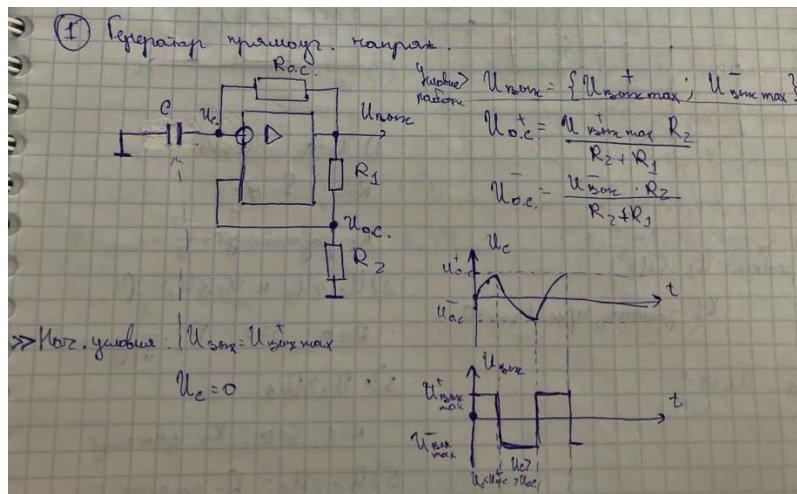 ① Генератор прямоуг. напряж.
Rо.с.
C
Uс
Uвых
▷
R1
Uо.с.
R2
Условие работы > Uвых = {U⁺вых max; U⁻вых max}
U⁺о.с. = U⁺вых max R2 / R2 + R1
U⁻о.с. = U⁻вых · R2 / R2 + R1
Uс
U⁺о.с
U⁻о.с
t
>> Нач. условия: Uвых = U⁺вых max
Uс = 0
Uвых
U⁺вых max
U⁻вых max
t